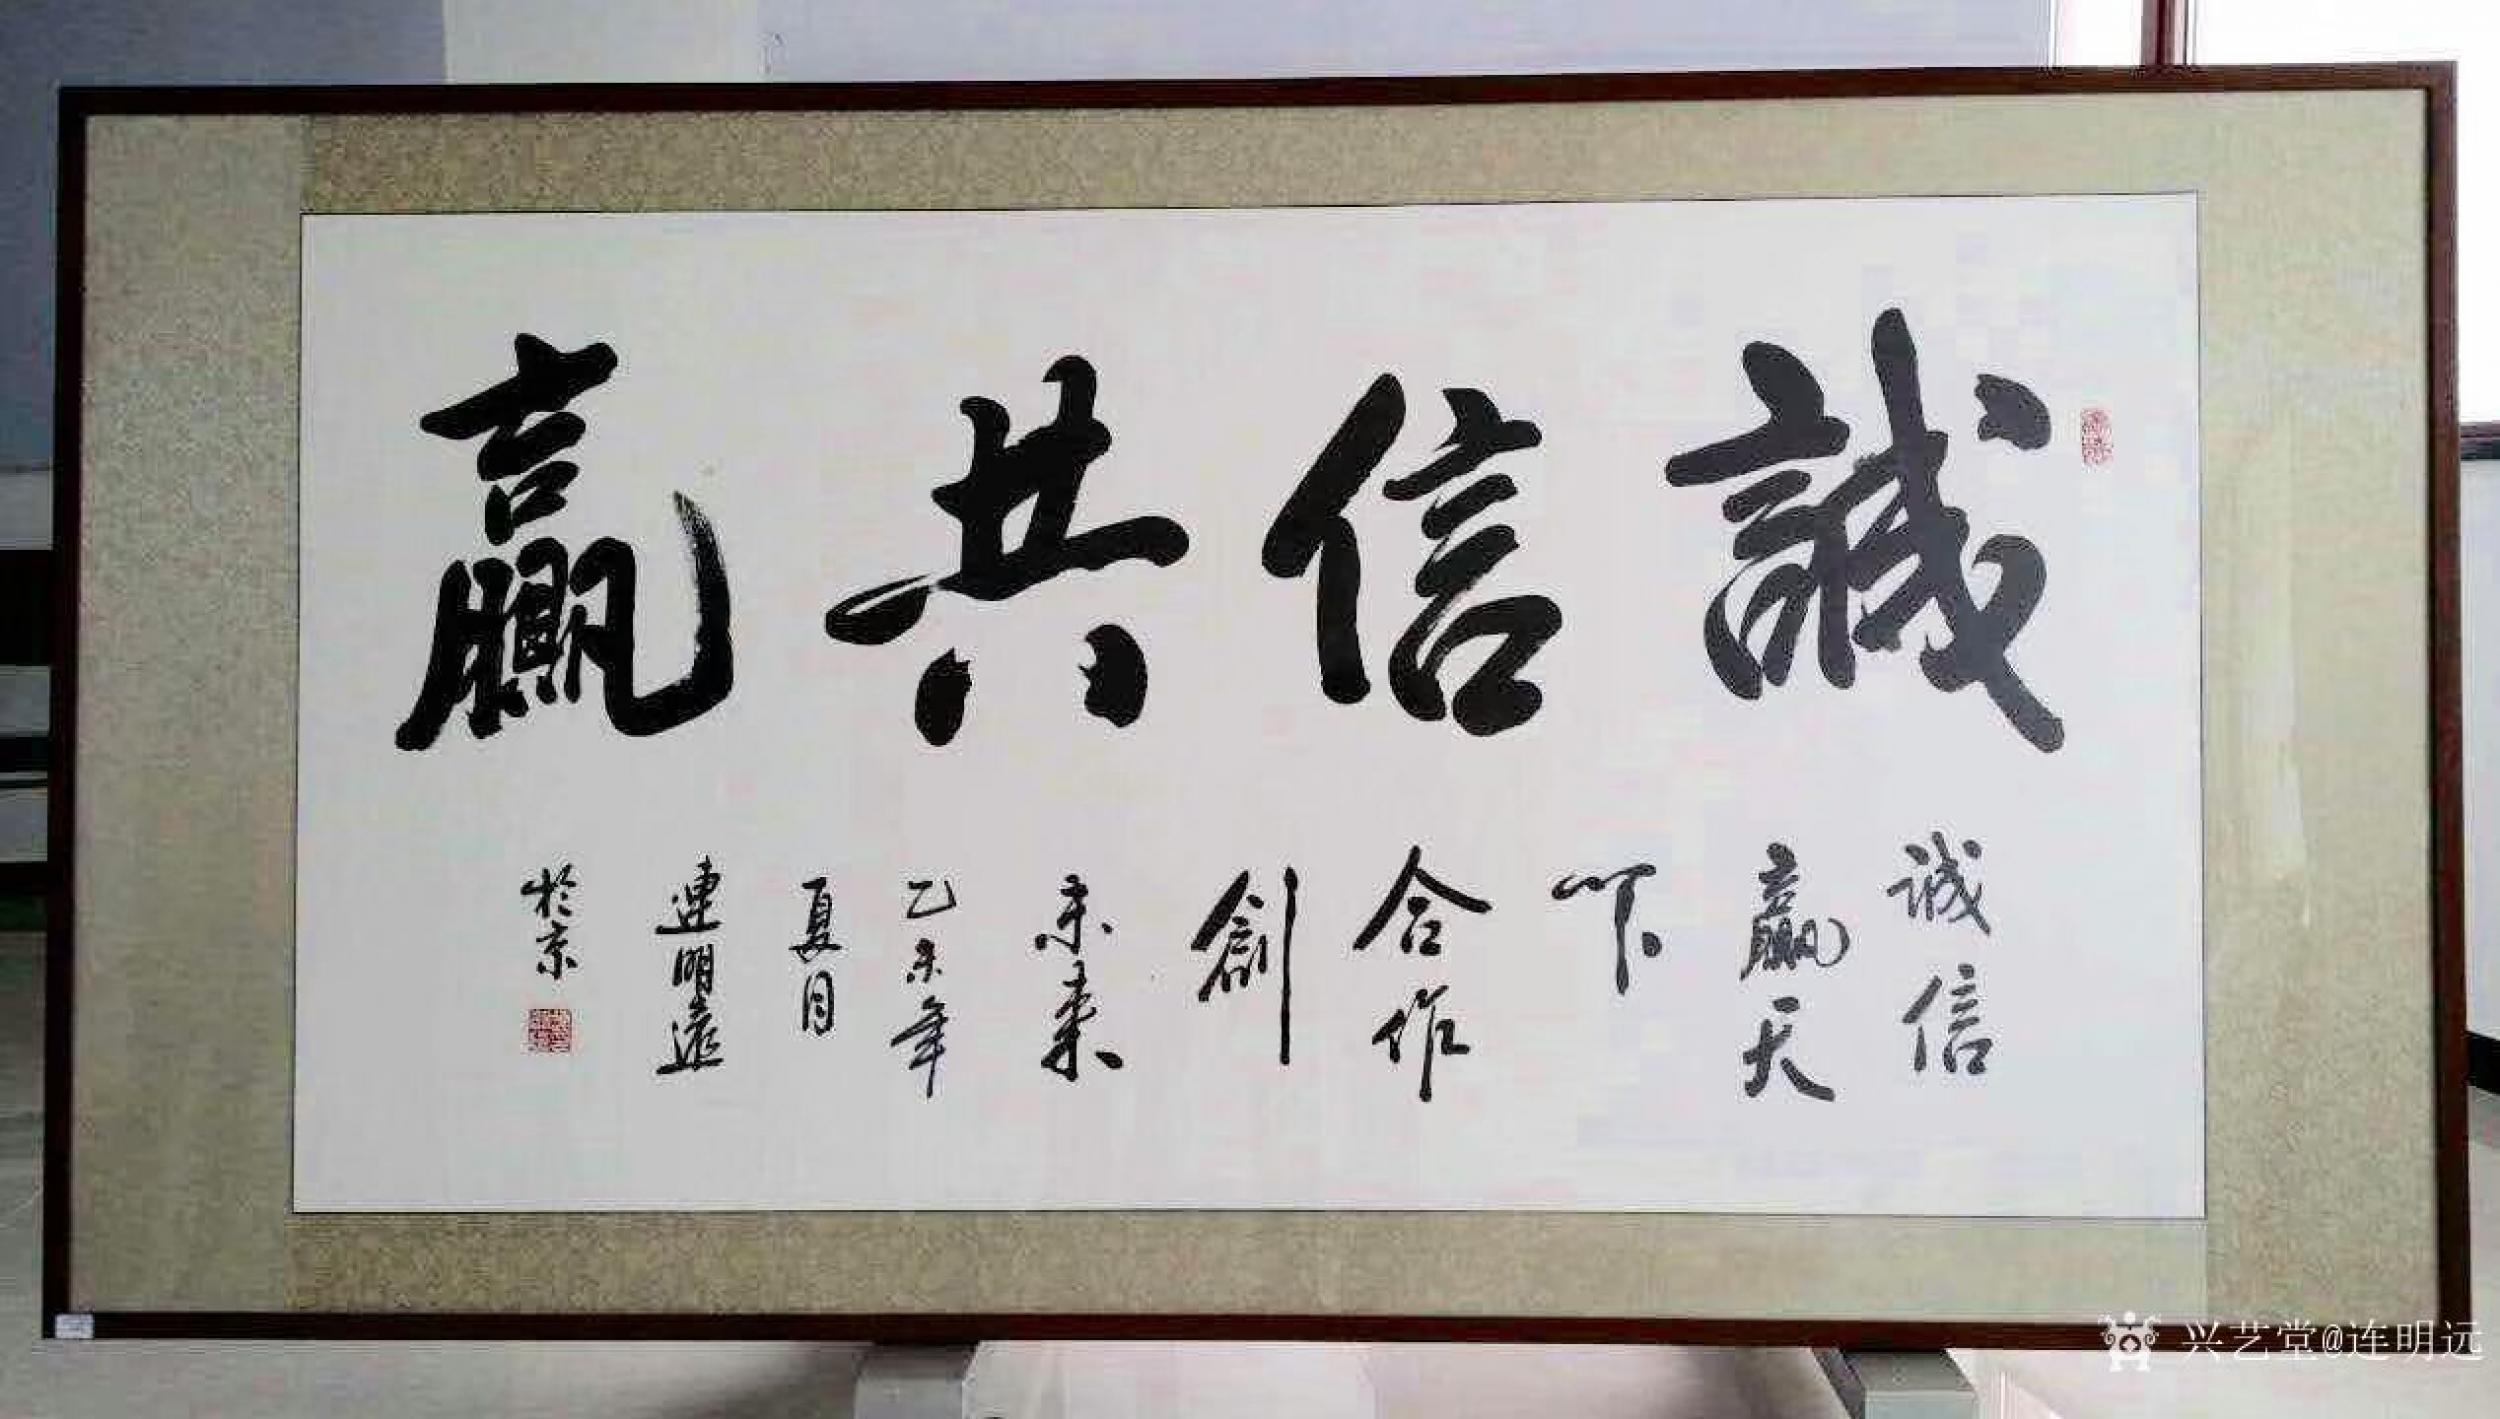 誠信共贏
誠信
贏天
下
合作
創
未来
乙未年
夏月
連明遠
於京
兴艺堂@连明远